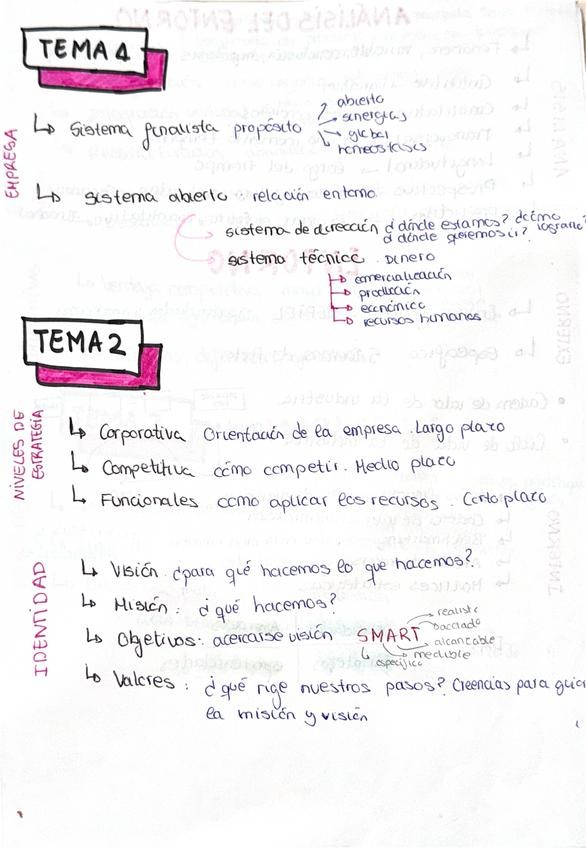 TEMA 1
EMPRESA
↳ Sistema finalista propósito
abierto
sinergias
global
homeostasis
↳ Sistema abierto relación entorno
sistema de dirección ¿dónde estamos? ¿cómo lograrlo?
¿dónde queremos ir?
sistema técnico. Dinero
comercialización
producción
económico
recursos humanos
TEMA 2
NIVELES DE
ESTRATEGIA
↳ Corporativa Orientación de la empresa. Largo plazo
↳ Competitiva cómo competir. Medio plazo
↳ Funcionales como aplicar los recursos. Corto plazo
IDENTIDAD
↳ Visión. ¿para qué hacemos lo que hacemos?
↳ Misión: ¿qué hacemos?
↳ Objetivos: acercarse visión SMART
realista
alcanzable
medible
específico
↳ Valores: ¿qué rige nuestros pasos? Creencias para guiar
la misión y visión